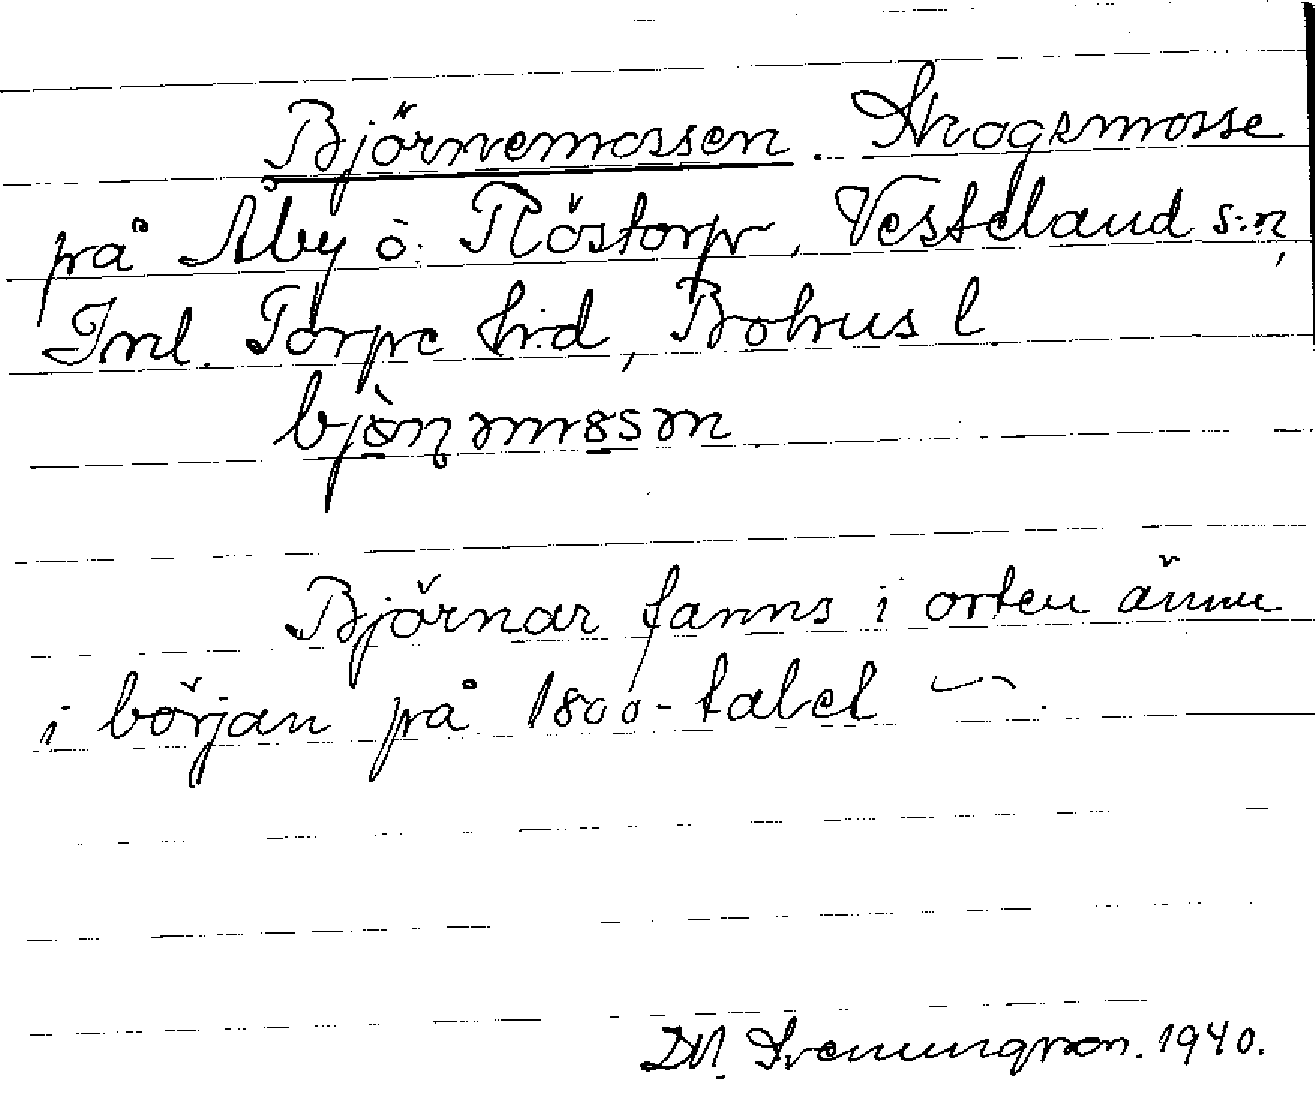 Björnemossen. Skogsmosse
på Åby ö. Röstorp, Vesteland s:n,
Inl. Torpe hd, Bohus l.
bjö̀ṇ əmŏsən
Björnar fanns i orten ännu
i början på 1800-talet ~.
D. N. Svenungsson. 1940.